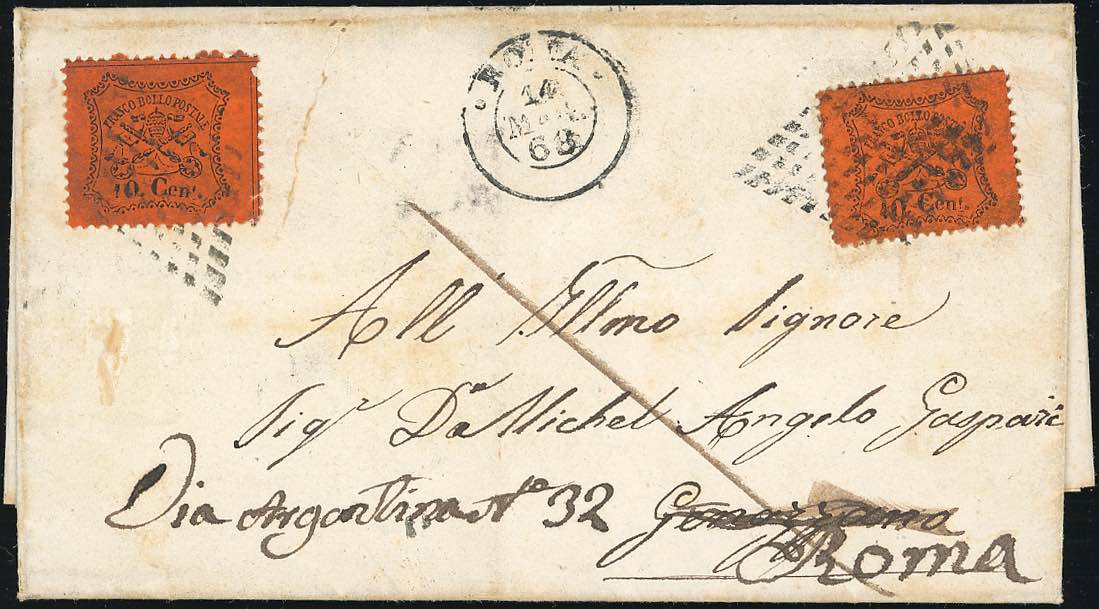 FRANCO BOLLO POSTALE
10. Cent.
ROMA
14
68
FRANCO BOLLO POSTALE
10. Cent.
All' Illmo Signore
Sigr Dn Michel Angelo Gaspari
Via Argentina No 32
Roma